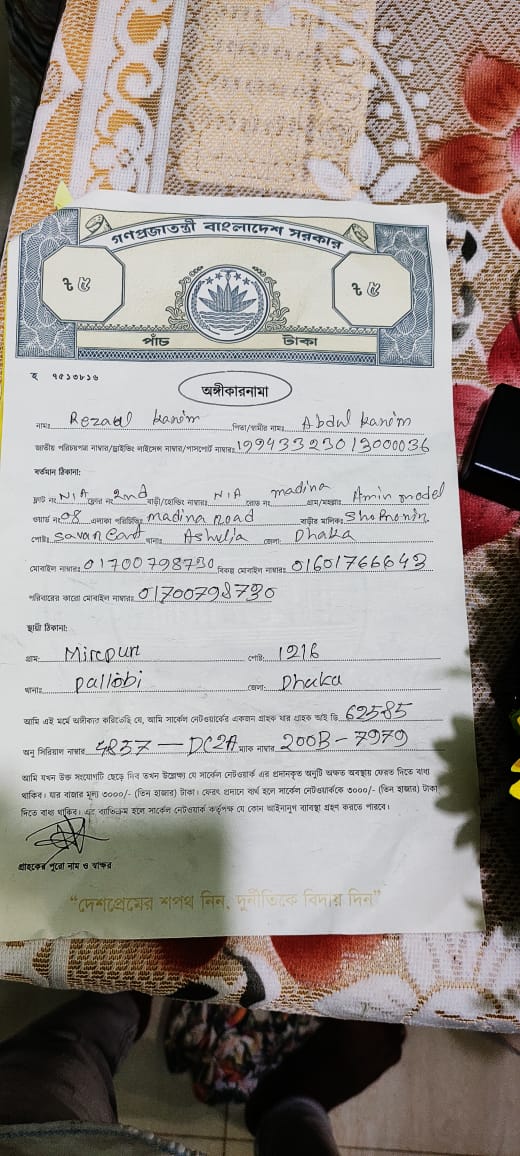 গণপ্রজাতন্ত্রী বাংলাদেশ সরকার
৳ ৫ ৳ ৫
পাঁচ টাকা
হ ৭৫১৩৮১৬
অঙ্গীকারনামা
নামঃ Rezaul Karim পিতা/স্বামীর নামঃ Abdul Karim
জাতীয় পরিচয়পত্র নাম্বার/ড্রাইভিং লাইসেন্স নাম্বার/পাসপোর্ট নাম্বারঃ 19943323013000036
বর্তমান ঠিকানা:
ফ্লাট নং N/A ফ্লোর নং 2nd বাড়ী/হোল্ডিং নাম্বারঃ N/A রোড নং madina গ্রাম/মহল্লাঃ Amin model
ওয়ার্ড নং 08 এলাকা পরিচিতিঃ madina road বাড়ীর মালিকঃ Sho Monin
পোষ্টঃ Savar Cant থানাঃ Ashulia জেলা: Dhaka
মোবাইল নাম্বারঃ 01700798730 বিকল্প মোবাইল নাম্বারঃ 01601766643
পরিবারের কারো মোবাইল নাম্বারঃ 01700798730
স্থায়ী ঠিকানা:
গ্রাম: Mirpur পোষ্ট: 1216
থানাঃ Pallobi জেলা: Dhaka
আমি এই মর্মে অঙ্গীকার করিতেছি যে, আমি সার্কেল নেটওয়ার্কের একজন গ্রাহক যার গ্রাহক আই ডি 62585
অনু সিরিয়াল নাম্বার 4857 — DC2A ম্যাক নাম্বার 200B - 7979
আমি যখন উক্ত সংযোগটি ছেড়ে দিব তখন উল্লেখ্য যে সার্কেল নেটওয়ার্ক এর প্রদানকৃত অনুটি অক্ষত অবস্থায় ফেরত দিতে বাধ্য
থাকিব। যার বাজার মূল্য ৩০০০/- (তিন হাজার) টাকা। ফেরৎ প্রদানে ব্যর্থ হলে সার্কেল নেটওয়ার্ককে ৩০০০/- (তিন হাজার) টাকা
দিতে বাধ্য থাকিব। এর ব্যতিক্রম হলে সার্কেল নেটওয়ার্ক কর্তৃপক্ষ যে কোন আইনানুগ ব্যাবস্থা গ্রহণ করতে পারবে।
গ্রাহকের পুরো নাম ও স্বাক্ষর
“দেশপ্রেমের শপথ নিন, দুর্নীতিকে বিদায় দিন”